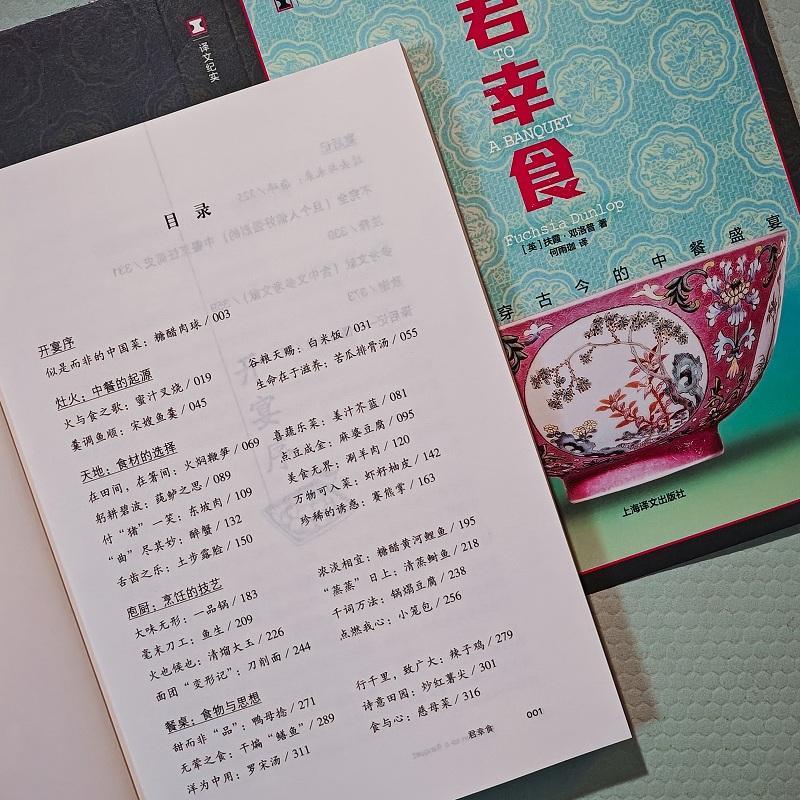 译文纪实
君幸食
TO
A BANQUET
Fuchsia Dunlop
[英] 扶霞·邓洛普 著
何雨珈 译
穿古今的中餐盛宴
上海译文出版社
目 录
开宴序
似是而非的中国菜：糖醋肉球 / 003
灶火：中餐的起源
火与食之歌：蜜汁叉烧 / 019
谷粮天赐：白米饭 / 031
羹调鱼顺：宋嫂鱼羹 / 045
生命在于滋养：苦瓜排骨汤 / 055
天地：食材的选择
在田间，在箸间：火焖鞭笋 / 069
喜蔬乐菜：姜汁芥蓝 / 081
躬耕碧波：莼鲈之思 / 089
点豆成金：麻婆豆腐 / 095
付“猪”一笑：东坡肉 / 109
美食无界：涮羊肉 / 120
“曲”尽其妙：醉蟹 / 132
万物可入菜：虾籽柚皮 / 142
舌齿之乐：土步露脸 / 150
珍稀的诱惑：赛熊掌 / 163
庖厨：烹饪的技艺
大味无形：一品锅 / 183
浓淡相宜：糖醋黄河鲤鱼 / 195
毫末刀工：鱼生 / 209
“蒸蒸”日上：清蒸鲥鱼 / 218
火也候也：清熘大玉 / 226
千词万法：锅塌豆腐 / 238
面团“变形记”：刀削面 / 244
点燃我心：小笼包 / 256
餐桌：食物与思想
甜而非“品”：鸭母捻 / 271
行千里，致广大：辣子鸡 / 279
无荤之食：干煸“鳝鱼” / 289
诗意田园：炒红薯尖 / 301
洋为中用：罗宋汤 / 311
食与心：慈母菜 / 316
君幸食
001